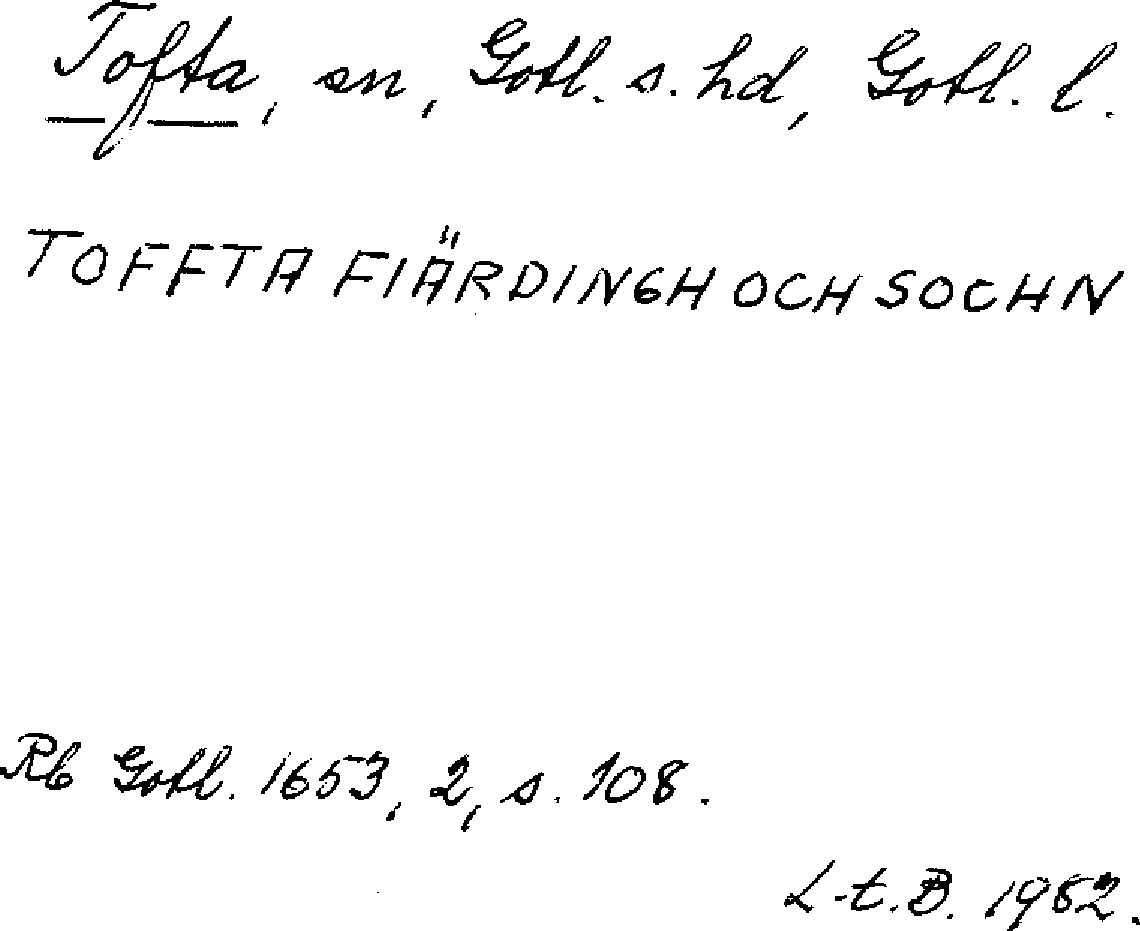 Tofta, sn, Gotl. s. hd, Gotl. l.
TOFFTA FIÄRDINGH OCH SOCHN
Rb Gotl. 1653, 2, s. 108.
L-t. B. 1982.